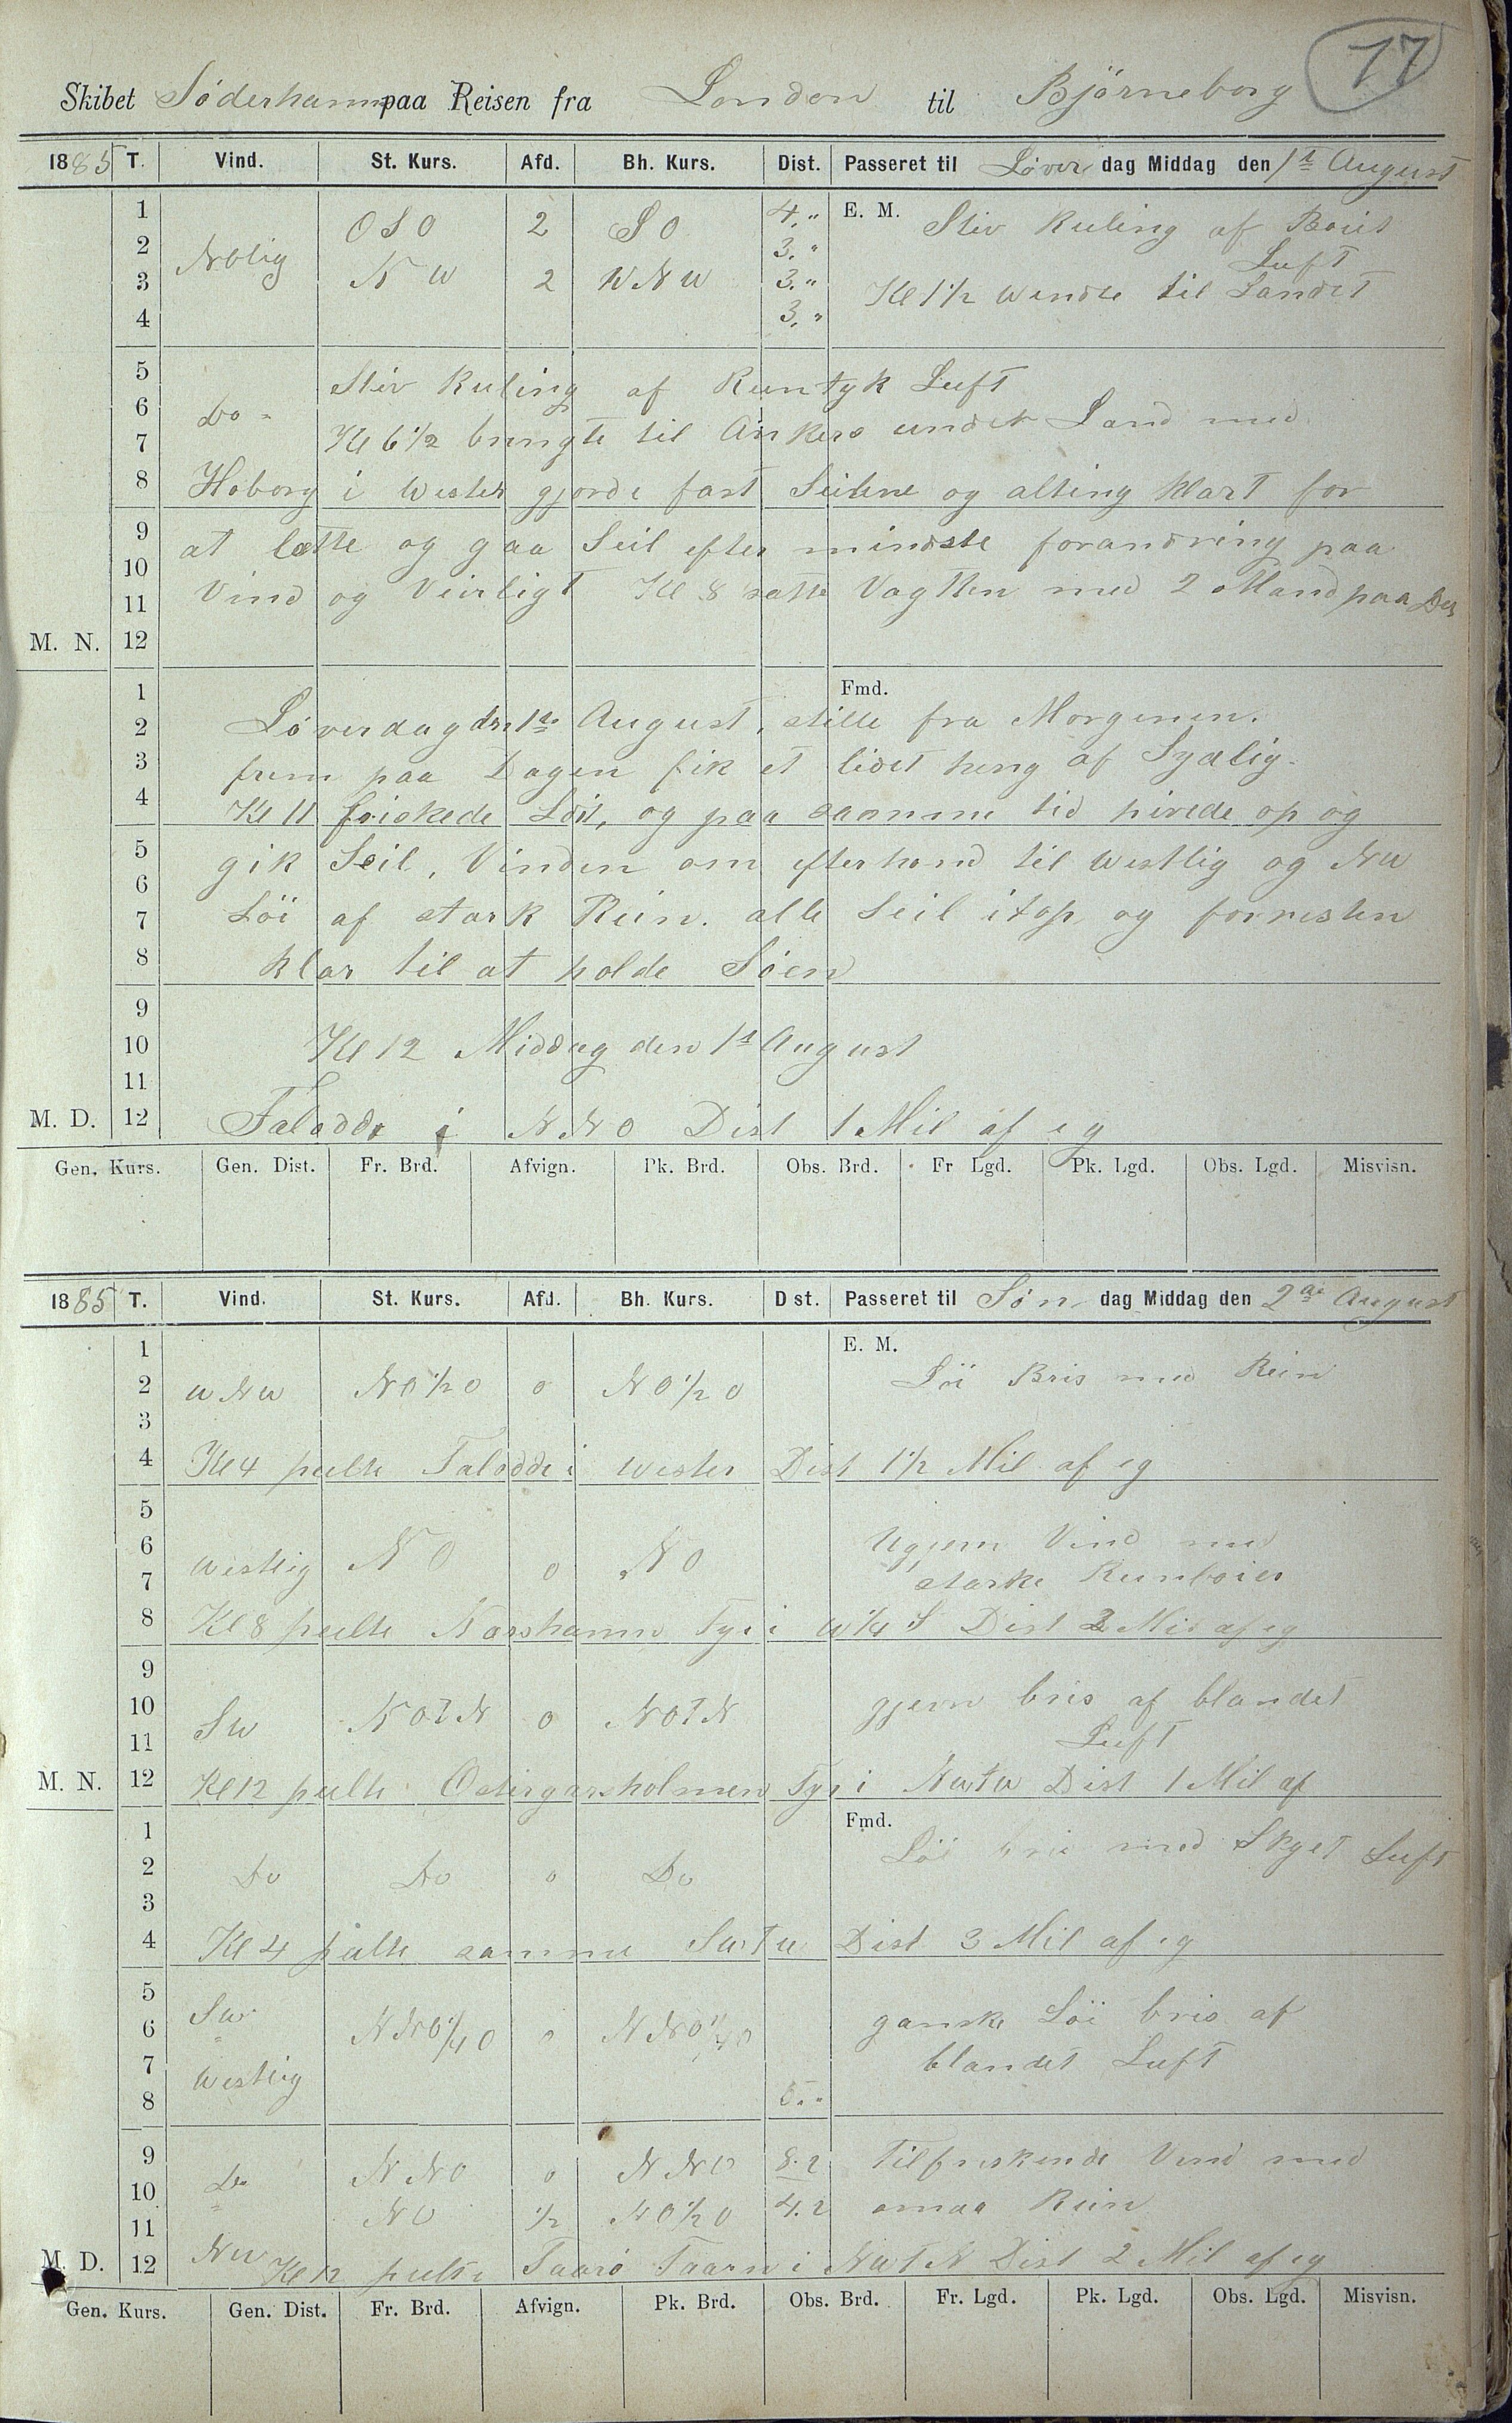 17
Skibet Söderhamn paa Reisen fra London til Björneborg
1885 T. Vind. St. Kurs. Afd. Bh. Kurs. Dist. Passeret til Löver dag Middag den 1st August
1 4,"  E. M. Stiv Kuling af
2 Nolig OSO 2 SO 3." Luft
3 NW 2 WNW 3." Kl 1½ Wendte til Landet
4 3,"
5 Stiv Kuling af Reintyk Luft
6 Do
7 Kl 6½ bragte til Ankers under Land med
8 Hoborg i Wester gjorde fast Seilene og alting klart for
9 at lette og gaa Seil efter mindste forandring paa
10
11 Vind og Veirligt Kl 8 satte Vagtten med 2 Mand paa
M. N. 12
1 Fmd.
2 Löverdag den 1ste August, stille fra Morgenen.
3 frem paa Dagen fik et lidet heng af Sydlig.
4 Kl 11 friskede Löit, og paa samme tid hivede op og
5 gik Seil, Vinden om efterhand til Westlig og NW
6
7 Löi af stark Rein. alle Seil itop og forresten
8 klar til at holde Söen
9
10 Kl 12 Middag den 1st August
11
M. D. 12 Faludde i NNO Dist 1 Mil af eg
Gen. Kurs. Gen. Dist. Fr. Brd. Afvign. Pk. Brd. Obs. Brd. Fr Lgd. Pk. Lgd. Obs. Lgd. Misvisn.
1885 T. Vind. St. Kurs. Afd. Bh. Kurs. Dst. Passeret til Sön dag Middag den 2de August
1 E. M.
2 WNW NO½O 0 NO½O Löi Bris med Rein
3
4 Kl 4 peilte Faludde i Wester Dist 1½ Mil af eg
5
6 Westlig NO 0 NO Ugjem Vind med
7 starke Reinboier
8 Kl 8 peilte Narshamn Fyr i W¼S Dist 2 Mil af eg
9
10 SW NOTN 0 NOTN gjem bris af blandet
11 Luft
M. N. 12 Kl 12 peilte Östergarsholmen Fyr i NWTW Dist 1 Mil af
1 Fmd.
2 Do Do 0 Do Löi bris med Skyet Luft
3
4 Kl 4 peilte samme SWTW Dist 3 Mil af eg
5
6 SW NNO¼O 0 NNO¼O ganske Löi bris af
7 Westlig blandet Luft
8
9 Do NNO 0 NNO 8.2 Tilfriskende Vind med
10 NO ½ NO½O 4.2 smaa Rein
11
M. D. 12 NW Kl 12 peilte Faarö Taarn i NWTN Dist 2 Mil af eg
Gen. Kurs. Gen. Dist. Fr. Brd. Afvign. Pk. Brd. Obs. Brd. Fr. Lgd. Pk. Lgd. Obs. Lgd. Misvisn.